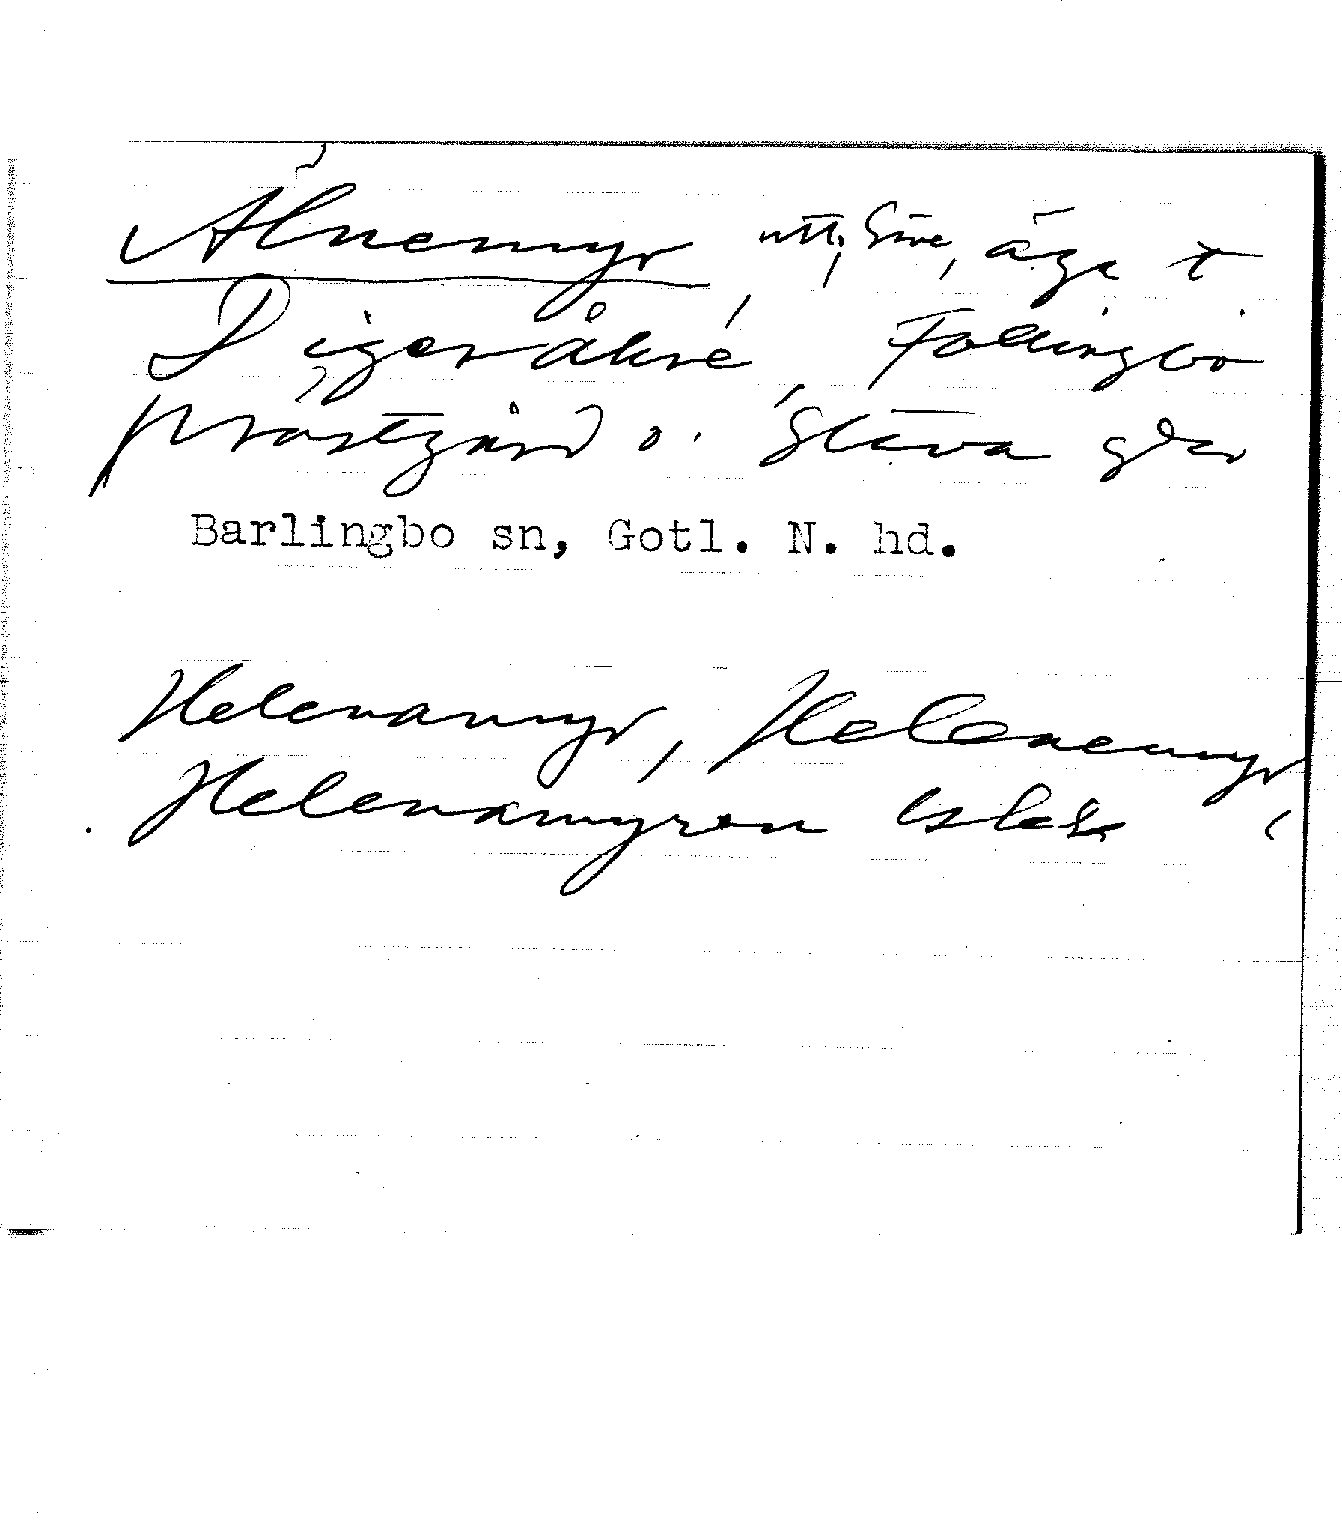 Alnemyr, äga t
Digeråkre, Follingbo
prästgård o. Stava gdar
Barlingbo sn, Gotl. N. hd.
Helenamyr, Helenemyr
Helenamyren